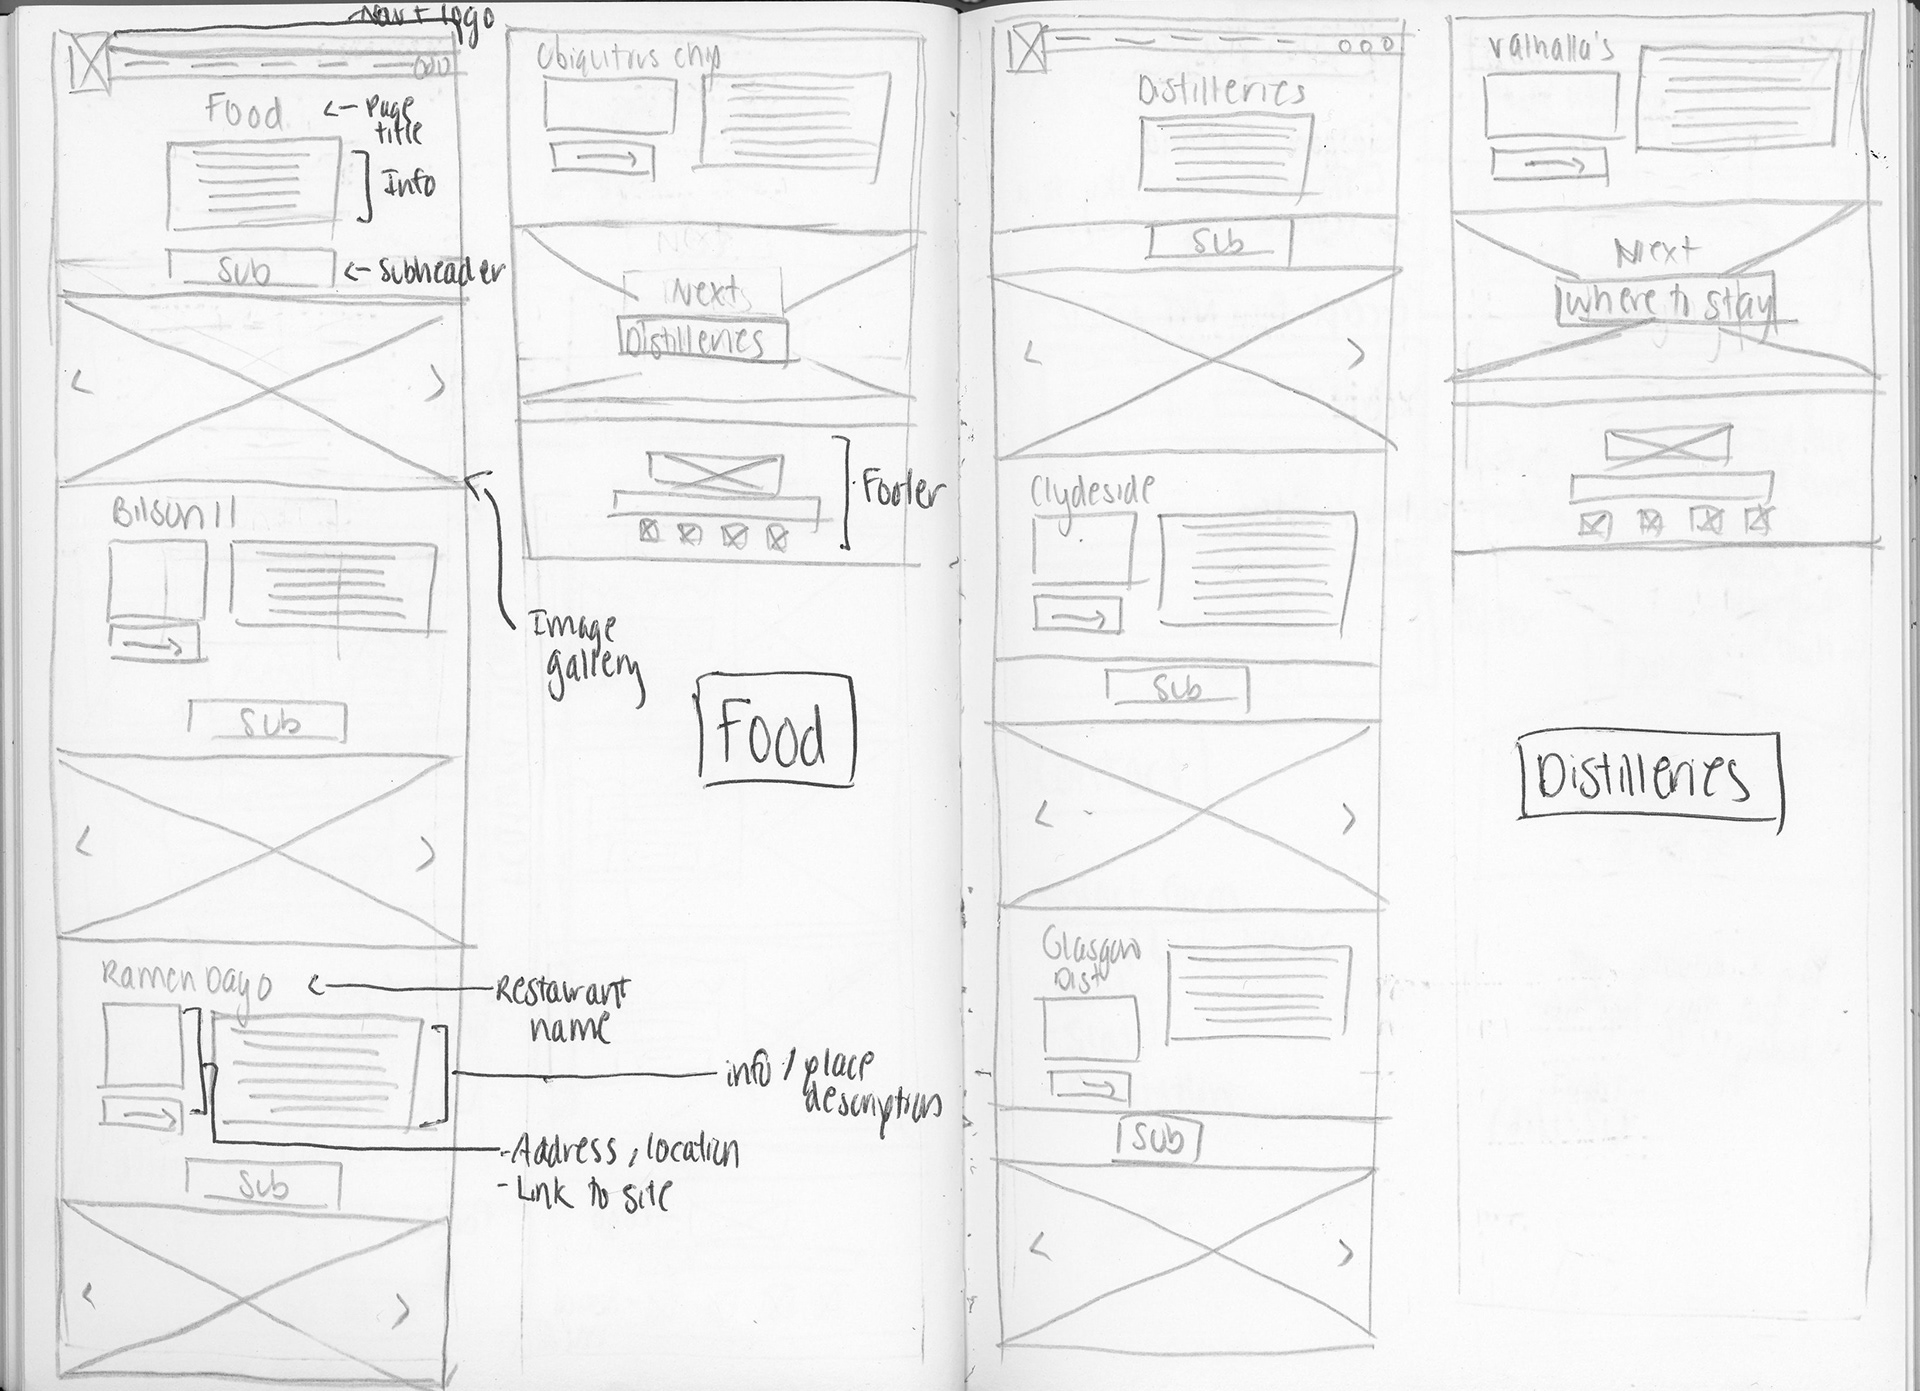 Nav + logo
Food
<- Page
title
Info
Sub
<- Subheader
< >
Bilson 11
Image
gallery
Sub
< >
Ramen Dayo
Restaurant
name
info / place
description
- Address, location
- Link to site
Sub
< >
Ubiquitrus chip
Next
Distilleries
Footer
Food
Distilleries
Sub
< >
Clydeside
Sub
< >
Glasgow
Dist
Sub
< >
Valhalla's
Next
Where to stay
Distilleries